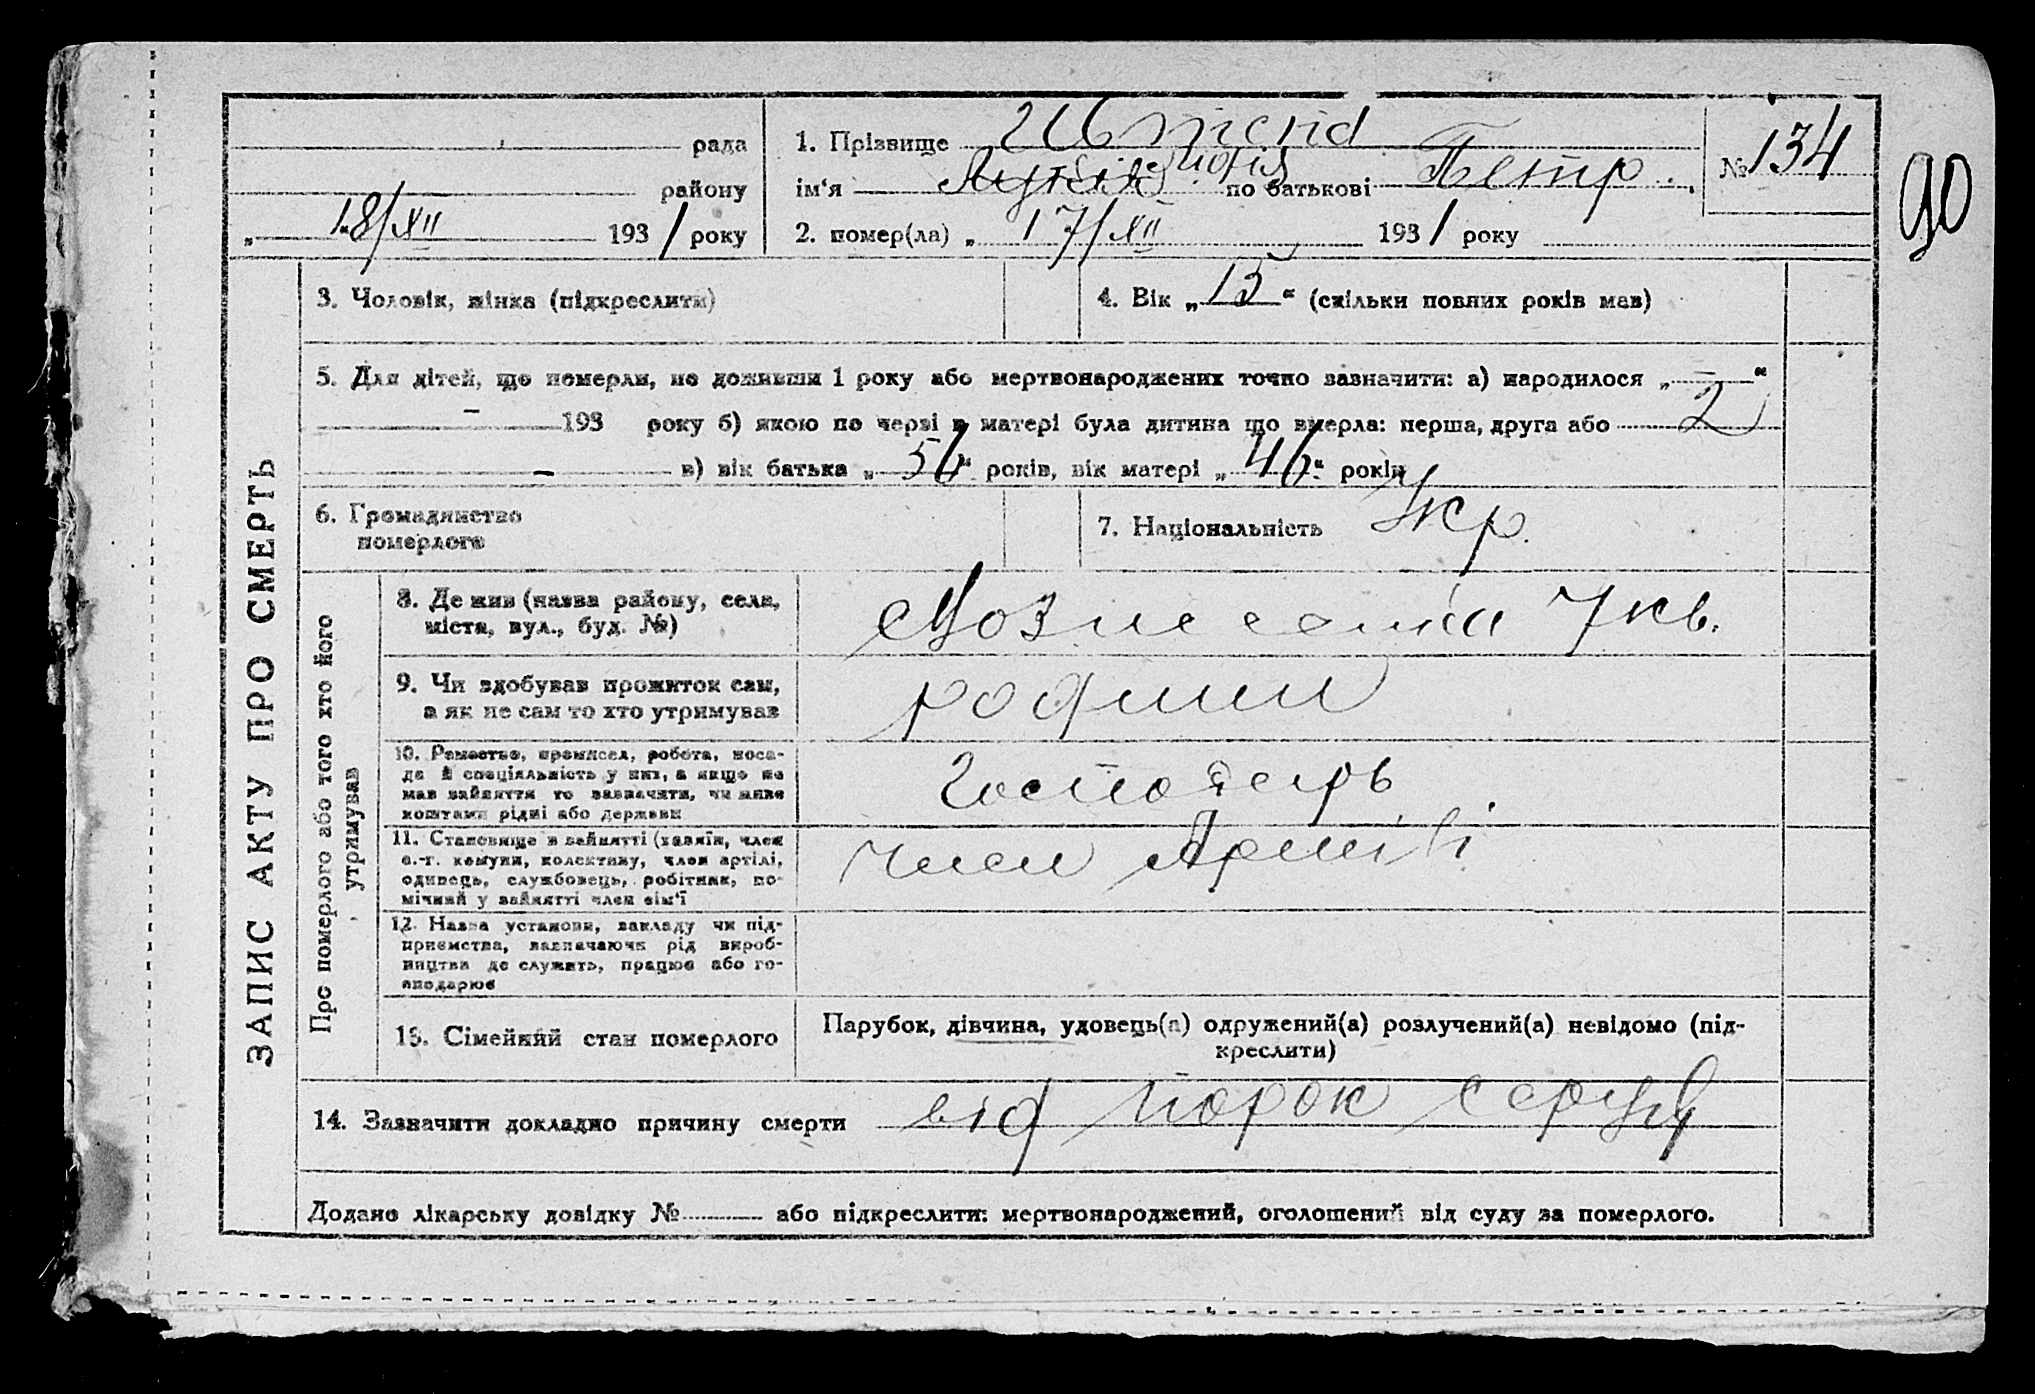 рада
району
„ 18/XII 1931 року
1. Прізвище
ім‘я Марія по батькові Петр.
2. помер(ла) „ 17/XII 1931 року
№ 134
90
ЗАПИС АКТУ ПРО СМЕРТЬ
3. Чоловік, жінка (підкреслити)
4. Вік „ 15 “ (скільки повних років мав)
5. Для дітей, що померли, не доживши 1 року або мертвонароджених точно зазначити: а) народилося „ – “
– 193 року б) якою по черзі в матері була дитина що вмерла: перша, друга або 2
– в) вік батька „ 56 “ років, вік матері „ 46 “ років
6. Громадянство
померлого
7. Національність Укр.
Про померлого або того хто його
утримував
8. Де жив (назва району, села,
міста, вул., буд. №)
7 кв.
9. Чи здобував прожиток сам,
а як не сам то хто утримував
родини
10. Ремество, промисел, робота, поса-
да й спеціяльність у них, а якщо не
мав зайняття то зазначити, чи живе
коштами рідні або держави
Господарь
11. Становище в зайнятті (хазяїн, член
с.-г. комуни, колективу, член артілі,
одинець, службовець, робітник, по-
мічний у зайнятті член сім‘ї
член Артілі
12. Назва установи, закладу чи під-
приємства, зазначаючи рід вироб-
ництва де служить, працює або го-
сподарює
13. Сімейний стан померлого
Парубок, дівчина, удовець(а) одружений(а) розлучений(а) невідомо (під-
креслити)
14. Зазначити докладно причину смерти від порок серця
Додано лікарську довідку № або підкреслити: мертвонароджений, оголошений від суду за померлого.